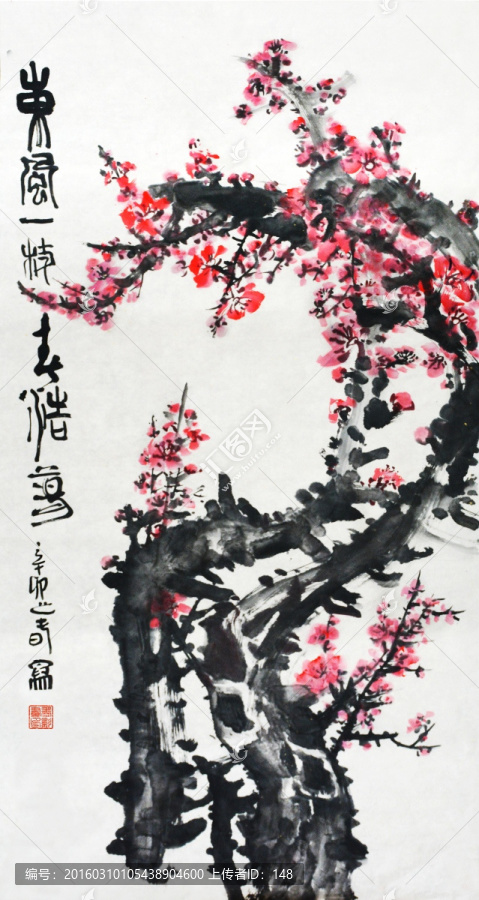 東風一枝春浩蕩
辛卯之春寫
编号：20160310105438904600 上传者ID：148